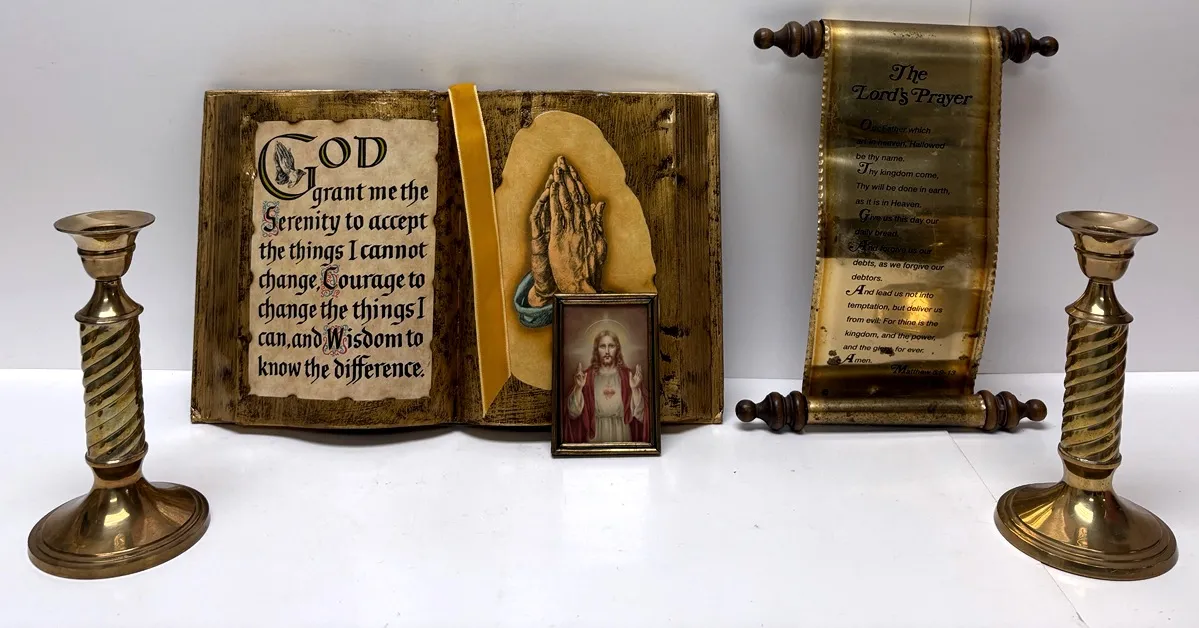 GOD
grant me the
Serenity to accept
the things I cannot
change, Courage to
change the things I
can, and Wisdom to
know the difference.
The
Lord's Prayer
Our Father which
art in heaven, Hallowed
be thy name.
Thy kingdom come,
Thy will be done in earth,
as it is in Heaven.
Give us this day our
daily bread.
And forgive us our
debts, as we forgive our
debtors.
And lead us not into
temptation, but deliver us
from evil: For thine is the
kingdom, and the power,
and the glory, for ever.
Amen.
Matthew 6:9-13